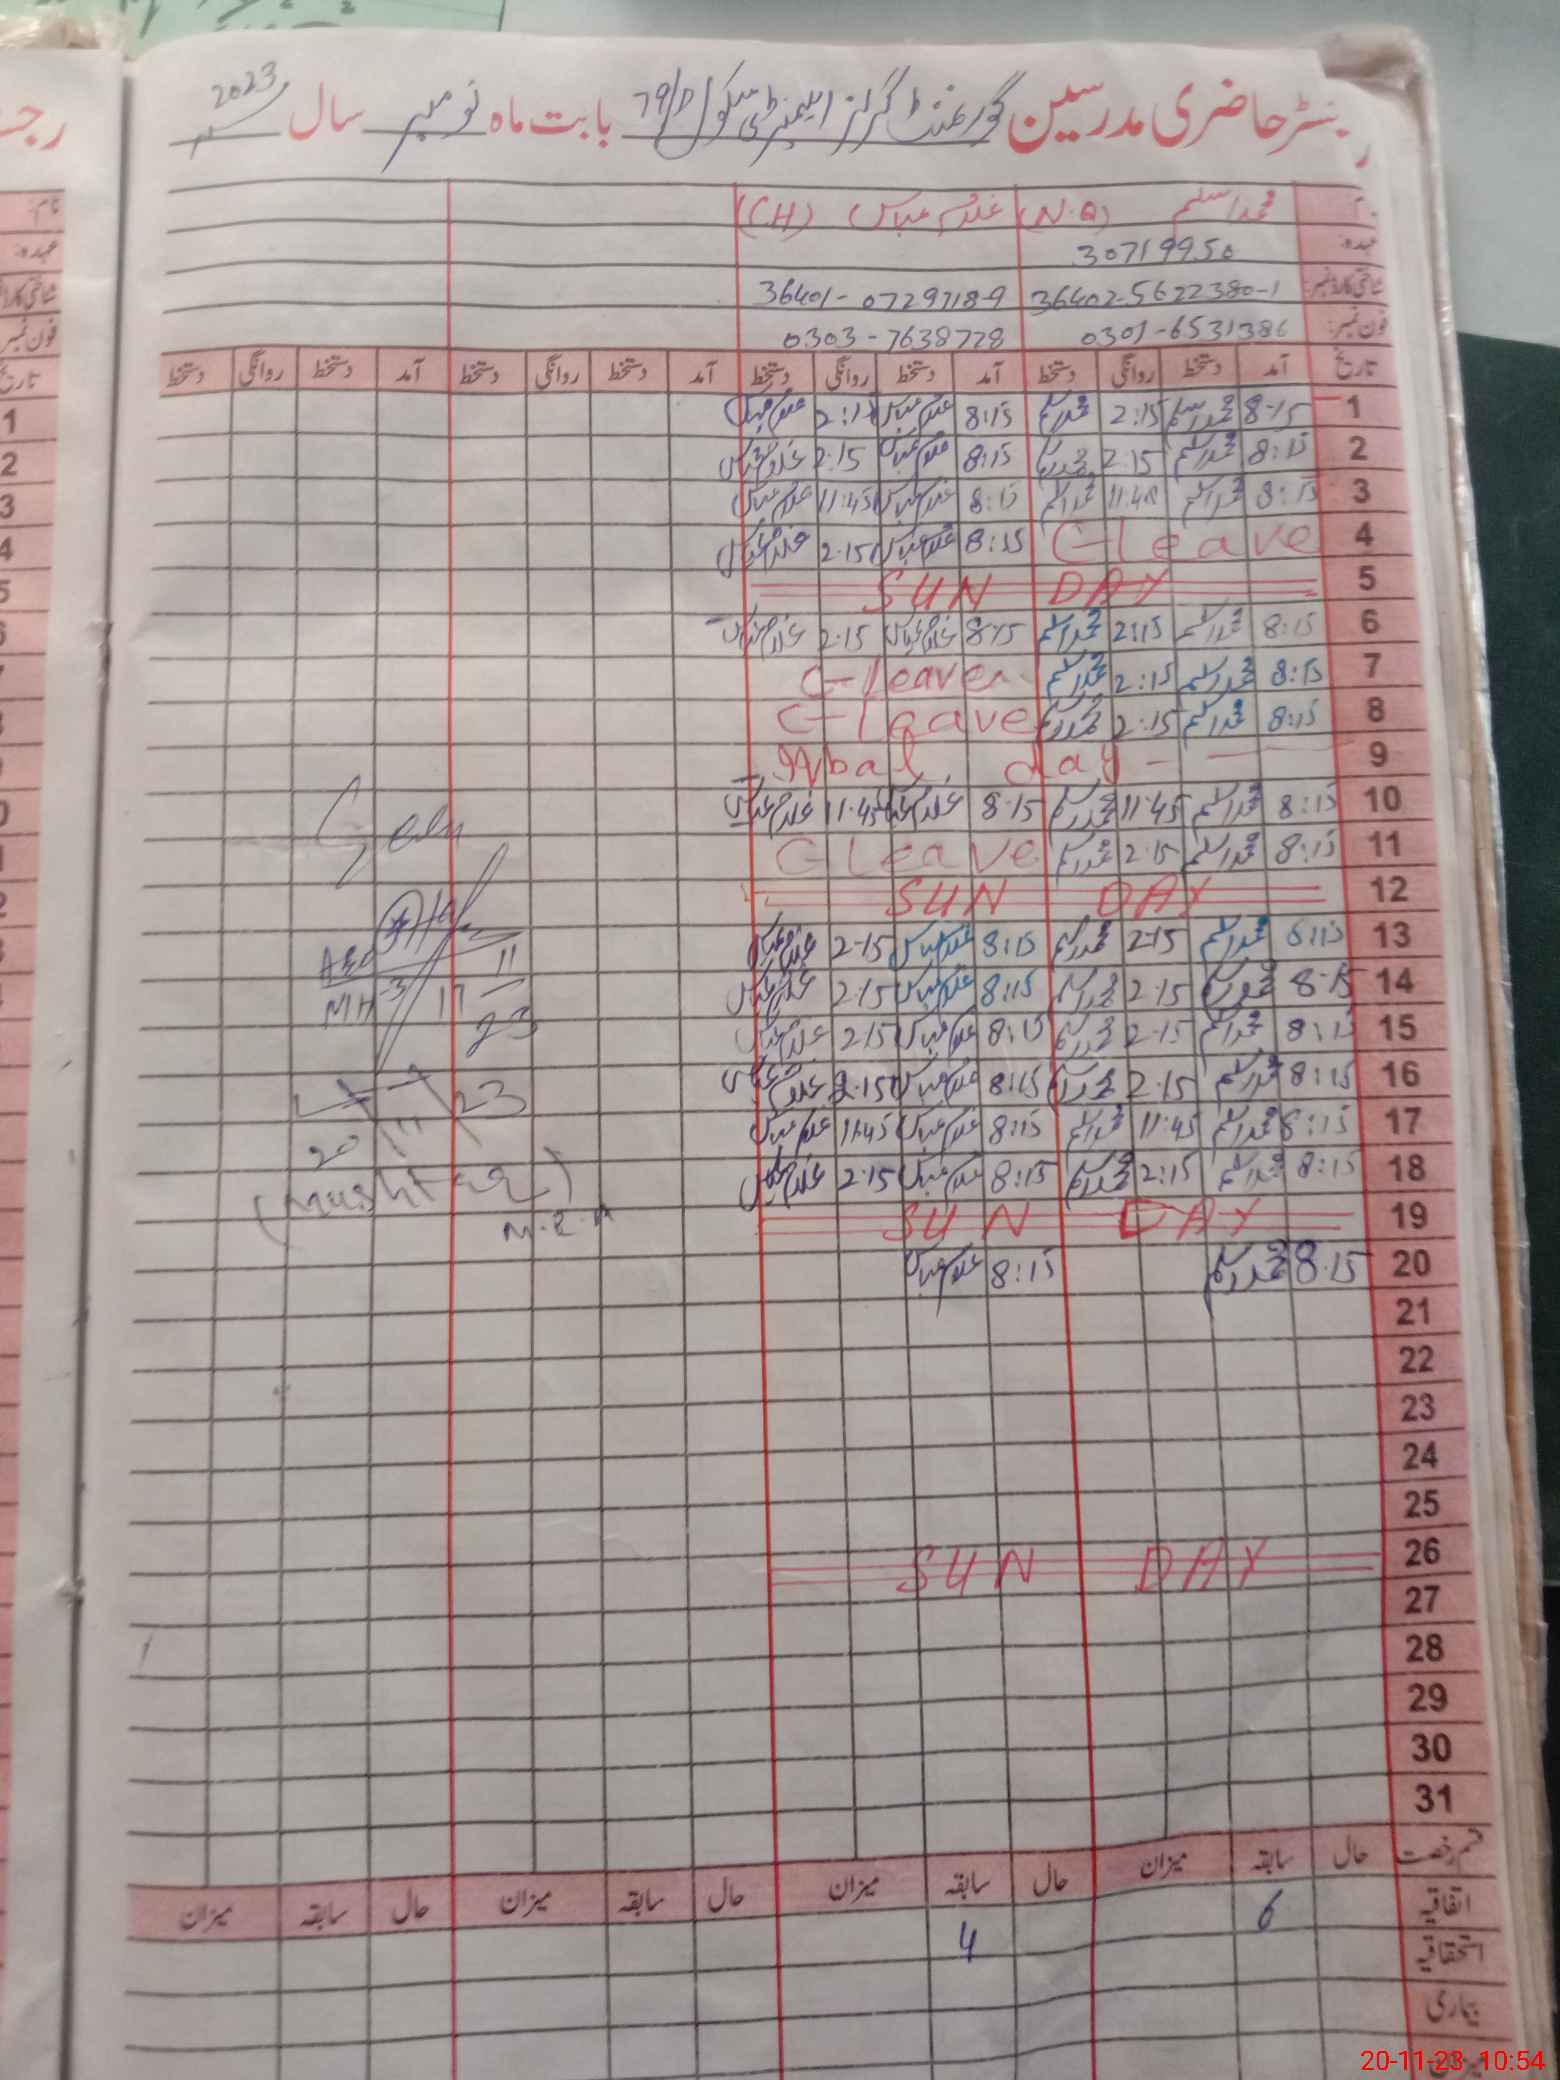 رجسٹر حاضری مدرسین گورنمنٹ گرلز ایلیمنٹری سکول 79/D بابت ماہ نومبر سال 2023
محمد اسلم (N.Q) غلام عباس (CH)
عہدہ: 30719950
شناختی کارڈ نمبر: 36402-5622380-1 36401-0729718-9
فون نمبر: 0301-6531386 0303-7638728
تاریخ آمد دستخط روانگی دستخط آمد دستخط روانگی دستخط آمد دستخط روانگی دستخط آمد دستخط روانگی دستخط
1 8-15 محمد اسلم 2:15 محمد اسلم 8:15 غلام عباس غلام عباس
2 8:15 محمد اسلم 2.15 محمد اسلم 8:15 غلام عباس 2.15 غلام عباس
3 8:15 محمد اسلم محمد اسلم 8:15 غلام عباس 11:45 غلام عباس
4 C-leave 8:15 غلام عباس 2.15 غلام عباس
5 SUN DAY
6 8:15 محمد اسلم 2:15 محمد اسلم 8:15 غلام عباس 2.15 غلام عباس
7 8:15 محمد اسلم 2:15 محمد اسلم C-leave
8 8:15 محمد اسلم 2.15 محمد اسلم C-leave
9 Iqbal day - -
10 8:15 محمد اسلم 11:45 محمد اسلم 8.15 غلام عباس 11.45 غلام عباس
11 8:15 محمد اسلم 2.15 محمد اسلم C-Leave
12 SUN DAY
13 محمد اسلم 2-15 محمد اسلم 8:15 غلام عباس 2-15 غلام عباس
14 8-15 محمد اسلم 2-15 محمد اسلم 8:15 غلام عباس 2.15 غلام عباس
15 8:15 محمد اسلم 2-15 محمد اسلم 8:15 غلام عباس 2.15 غلام عباس
16 8:15 محمد اسلم 2.15 محمد اسلم 8:15 غلام عباس 2.15 غلام عباس
17 8:15 محمد اسلم 11:45 محمد اسلم 8:15 غلام عباس 11.45 غلام عباس
18 8:15 محمد اسلم 2:15 محمد اسلم 8:15 غلام عباس 2.15 غلام عباس
19 SUN DAY
20 8.15 محمد اسلم 8:15 غلام عباس
21
22
23
24
25
26 SUN DAY
27
28
29
30
31
17
11
23
20/11/23
(Mushtaq)
قسم رخصت حال سابقہ میزان حال سابقہ میزان حال سابقہ میزان حال سابقہ میزان
اتفاقیہ 6 4
استحقاقیہ
بیماری
میزان
رجسٹ
نام:
عہدہ:
شناختی کارڈ
فون نمبر:
تاریخ
1
2
3
4
5
20-11-23 10:54